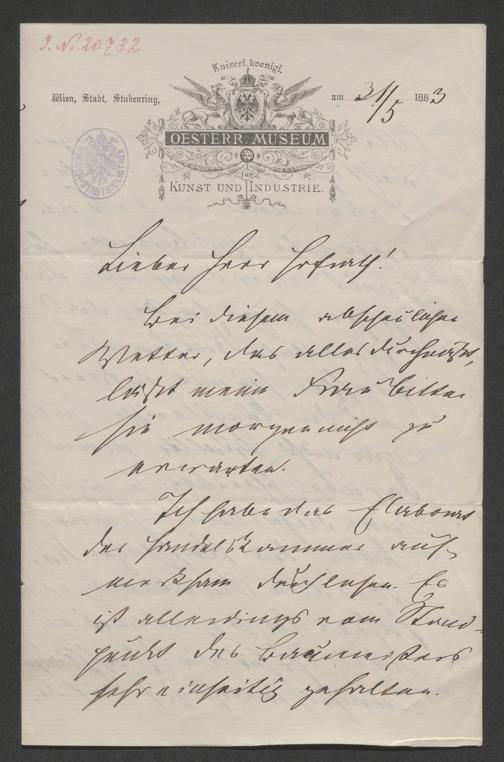 I. N. 20732
Kaiserl. koenigl.
Wien, Stadt, Stubenring, am 31/5 1883
OESTERR. MUSEUM
für
KUNST UND INDUSTRIE.
Lieber Herr Hofrath!
Bei diesem abscheulichen
Wetter, das alles durchnässt,
lässt meine Frau bitten
sie morgen nicht zu
erwarten.
Ich habe das Elaborat
der Handelskammer auf-
merksam durchlesen. Es
ist allerdings vom Stand-
punkt des Baumeisters
sehr einseitig gehalten.